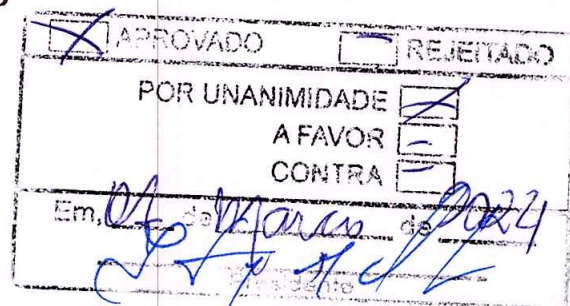 APROVADO REJEITADO
POR UNANIMIDADE
A FAVOR -
CONTRA -
Em, de Março de 2024
Presidente